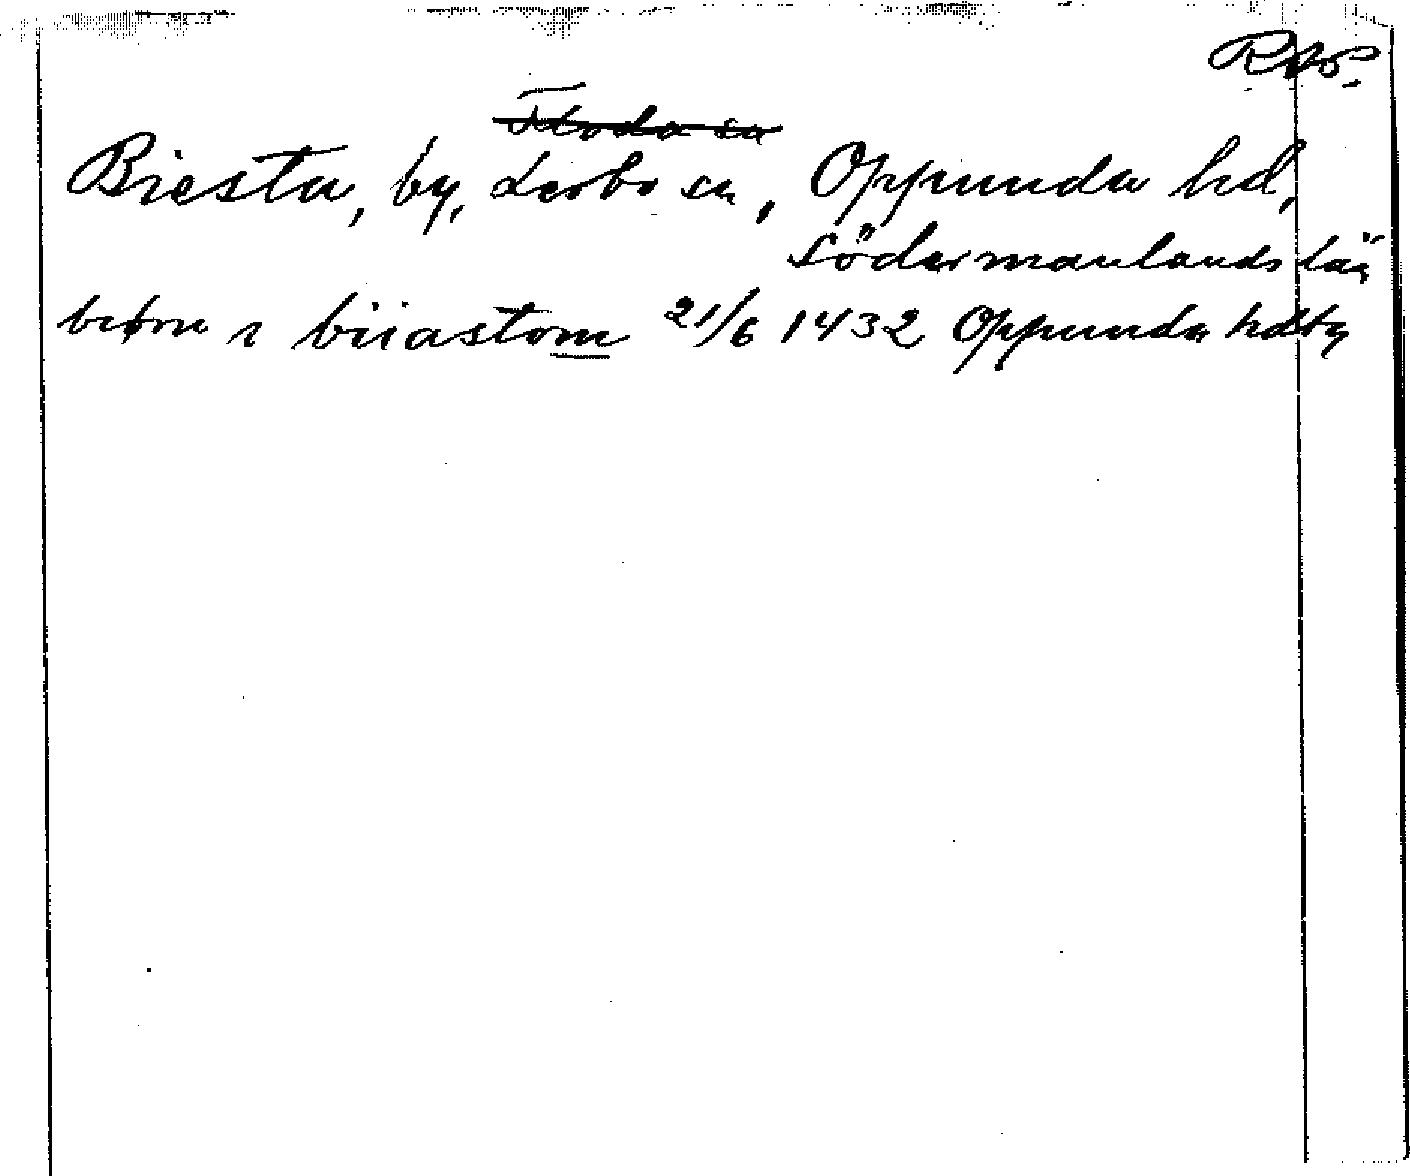 Floda sn
Biesta, by, Lerbo sn, Oppunda hd,
Södermanlands län
i biiastom 21/6 1432 Oppunda hdtg